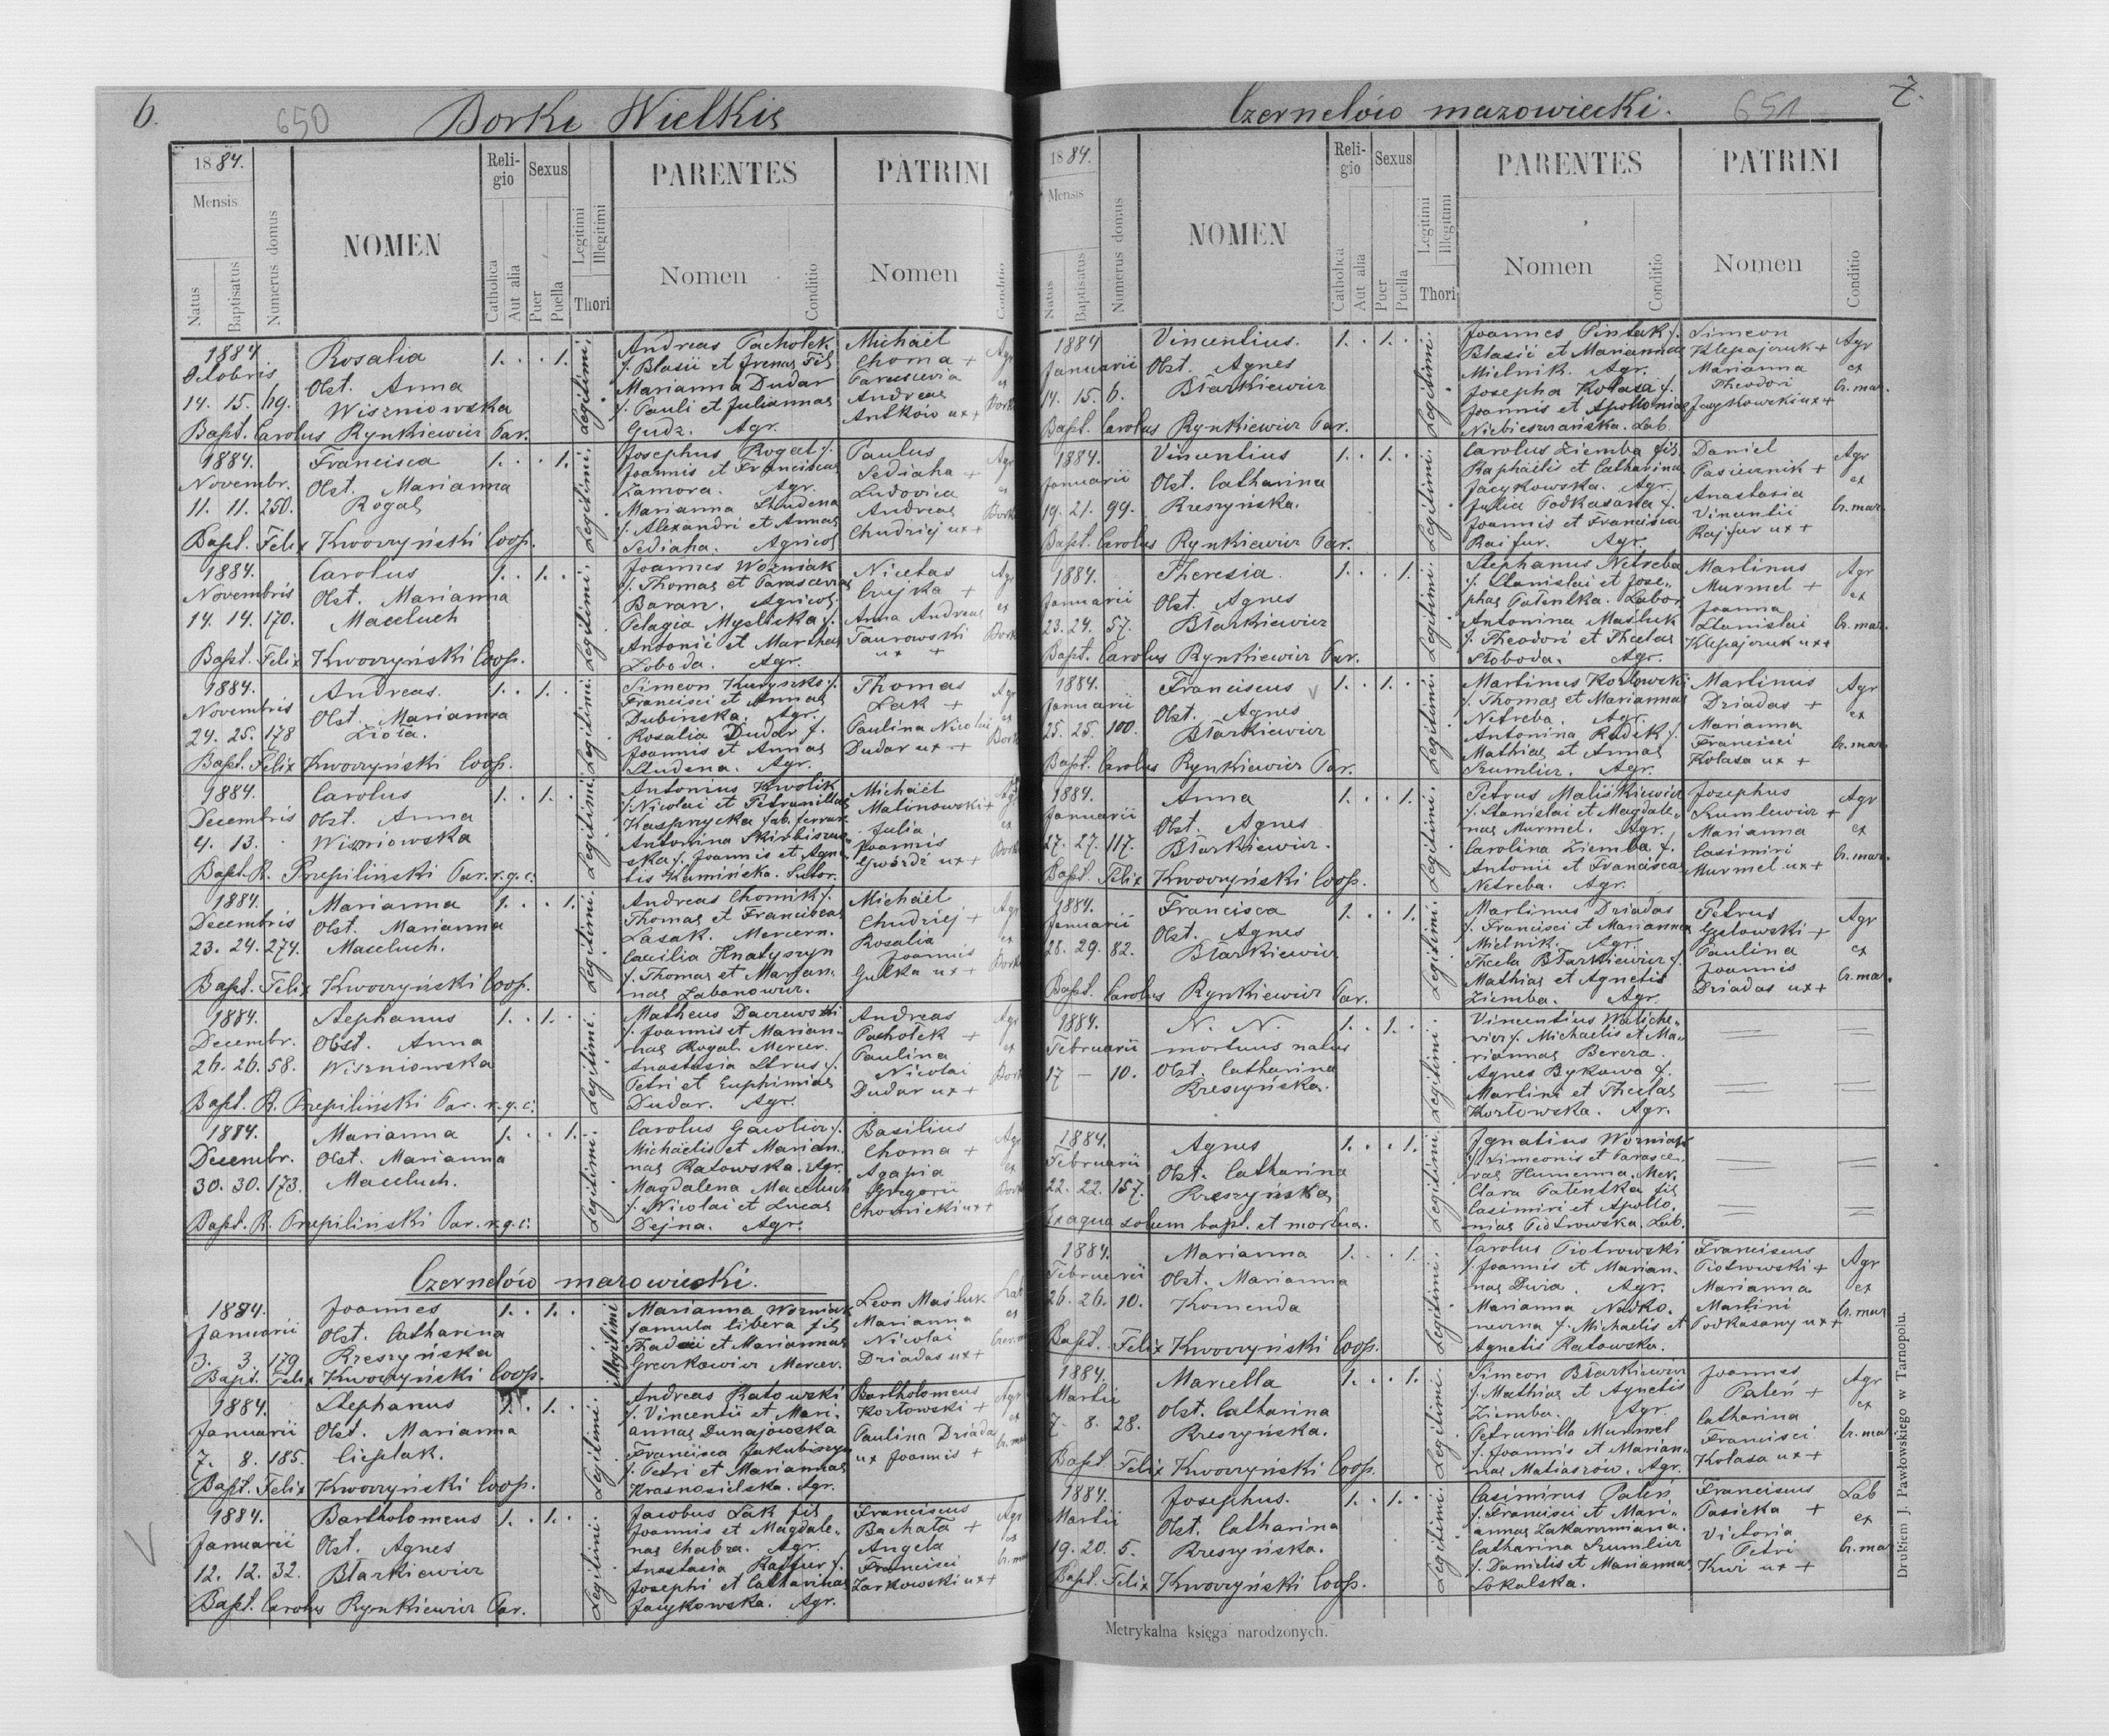 6.
650
Borki Wielkie
1884.
Mensis
Natus
Baptisatus
Numerus domus
NOMEN
Religio
Catholica
Aut alia
Sexus
Puer
Puella
Legitimi
Illegitimi
Thori
PARENTES
Nomen
Conditio
PATRINI
Nomen
Conditio
1884
Octobris
14. 15. 119.
Rosalia
Obst. Anna
Wiszniowska
Bapt. Carolus Rynkiewicz Par.
1. . . 1.
Legitimi.
Andreas Pacholek
f. Blasii et Irenae Fil
Marianna Dudar
f. Pauli et Juliannae
Gudz. Agr.
Michaël
Choma +
Parascevia
Andreae
Antków ux +
Agr
ex
Bork
1884.
Novembr.
11. 11. 250.
Francisca
Obst. Marianna
Rogal
Bapt. Felix Kwoczyński Coop.
1. . . 1.
Legitimi.
Josephus Rogal f.
Joannis et Franciscae
Zamora. Agr.
Marianna Studena
f. Alexandri et Annae
Sediaha. Agricol
Paulus
Sediaha +
Ludovica
Andreae
Chudziej ux +
Agr
ex
Bork
1884.
Novembris
14. 14. 170.
Carolus
Obst. Marianna
Maceluch
Bapt. Felix Kwoczyński Coop.
1. . 1. .
Legitimi.
Joannes Woźniak
f. Thomae et Parasceviae
Baran. Agricol
Pelagia Myśliska f.
Antonii et Marthae
Łoboda. Agr.
Nicetas
+
Anna Andreae
Taurowski
ux +
Agr
ex
Bork
1884.
Novembris
24. 25. 178
Andreas.
Obst. Marianna
Zioła.
Bapt. Felix Kwoczyński Coop.
1. . 1. .
Legitimi.
Simeon Kuryszko f.
Francisci et Annae
Dubinska. Agr.
Rosalia Dudar f.
Joannis et Annae
Studena. Agr.
Thomas
Łak +
Paulina Nicolai
Dudar ux +
Agr
ex
Bork
1884.
Decembris
4. 13.
Carolus
Obst. Anna
Wiszniowska
Bapt. R. Przepiliński Par. r. g. c.
1. . 1. .
Legitimi.
Antonius Kwolik
f. Nicolai et Petronillae
Kasprzycka fab. ferrar.
Antonina
ska f. Joannis et Agne-
tis Kamińska. Sutor.
Michaël
Malinowski +
Julia
Joannis
Gwóźdź ux +
Agr
ex
Bork
1884.
Decembris
23. 24. 274.
Marianna
Obst. Marianna
Maceluch.
Bapt. Felix Kwoczyński Coop.
1. . . 1.
Legitimi.
Andreas Chomik f.
Thomae et Franciscae
Lasak. Mercen.
Caecilia Hnatyszyn
f. Thomae et Marian-
nae Łabanowicz.
Michaël
Chudziej +
Rosalia
Joannis
Gulka ux +
Agr
ex
Bork
1884.
Decembr.
26. 26. 58.
Stephanus
Obst. Anna
Wiszniowska
Bapt. R. Przepiliński Par. r. g. c.
1. . 1. .
Legitimi.
Matheus Daczewski
f. Joannis et Marian-
nae Rogal. Mercer.
Anastasia Strus f.
Petri et Euphimiae
Dudar. Agr.
Andreas
Pacholek +
Paulina
Nicolai
Dudar ux +
Agr
ex
Bork
1884.
Decembr.
30. 30. 173.
Marianna
Obst. Marianna
Maceluch.
Bapt. R. Przepiliński Par. r. g. c.
1. . . 1.
Legitimi.
Carolus Gawlicz f.
Michaëlis et Marian-
nae Ratowska. Agr.
Magdalena Maceluch
f. Nicolai et Lucae
Dejna. Agr.
Basilius
Choma +
Agapia
Gregorii
Chomicki ux +
Agr
ex
Bork
Czernelów mazowiecki.
1884.
Januarii
3. 3. 179
Joannes
Obst. Catharina
Kreszyńska
Bapt. Felix Kwoczyński Coop.
1. . 1. .
Illegitimi
Marianna Woźniak
famula libera fil
Thadaei et Mariannae
Grczkowicz Mercer.
Leon Maśluk
Marianna
Nicolai
Driadas ux +
Lab
ex
1884.
Januarii
7. 8. 185.
Stephanus
Obst. Marianna
Cieplak.
Bapt. Felix Kwoczyński Coop.
1. . 1. .
Legitimi.
Andreas Ratowski
f. Vincentii et Mari-
annae Dunajowska
Francisca Jakubiszyn
f. Petri et Mariannae
Krasnosielska. Agr.
Bartholomeus
Kozłowski +
Paulina Driadas
ux Joannis +
Agr
ex
Cz. maz
1884.
Januarii
12. 12. 32.
Bartholomeus
Obst. Agnes
Błarkiewicz
Bapt. Carolus Rynkiewicz Par.
1. . 1. .
Legitimi.
Jacobus Łak fil
Joannis et Magdale-
nae Chabza. Agr.
Anastasia Rajfur f.
Josephi et Catharinae
Jacykowska. Agr.
Franciscus
Bachała +
Angela
Francisci
Żarkowski ux +
Agr
ex
Cz. maz
7.
Czernelów mazowiecki.
651
1884.
Mensis
Natus
Baptisatus
Numerus domus
NOMEN
Religio
Catholica
Aut alia
Sexus
Puer
Puella
Legitimi
Illegitimi
Thori
PARENTES
Nomen
Conditio
PATRINI
Nomen
Conditio
1884
Januarii
14. 15. 6.
Vincentius.
Obst. Agnes
Błarkiewicz
Bapt. Carolus Rynkiewicz Par.
1. . 1. .
Legitimi.
Joannes Pintak f.
Blasii et Mariannae
Mielnik. Agr.
Josepha Kolasa f.
Joannis et Apolloniae
Niebieszczańska. Lab.
Simeon
Klepajczuk +
Marianna
Theodori
Jacykowski ux +
Agr
ex
Cz. maz.
1884.
Januarii
19. 21. 99.
Vincentius
Obst. Catharina
Kreszyńska.
Bapt. Carolus Rynkiewicz Par.
1. . 1. .
Legitimi.
Carolus Ziemba fil
Raphaëlis et Catharina
Jacykowska. Agr.
Julia Podkasana f.
Joannis et Francisca
Raifur. Agr.
Daniel
Pasiecznik +
Anastasia
Vincentii
Rajfur ux +
Agr
ex
Cz. maz.
1884.
Januarii
23. 24. 57.
Theresia.
Obst. Agnes
Błarkiewicz
Bapt. Carolus Rynkiewicz Par.
1. . . 1.
Legitimi.
Stephanus Netreba
f. Stanislai et Jose-
phae Palentka. Labor
Antonina Maśluk
f. Theodori et Theclae
Słoboda. Agr.
Martinus
Murmel +
Joanna
Stanislai
Klepajczuk ux +
Agr
ex
Cz. maz.
1884.
Januarii
25. 25. 100.
Franciscus
Obst. Agnes
Błarkiewicz
Bapt. Carolus Rynkiewicz Par.
1. . 1. .
Legitimi.
Martinus Kozłowski
f. Thomae et Mariannae
Netreba. Agr.
Antonina Rudzik f.
Mathiae et Annae
Szumlicz. Agr.
Martinus
Driadas +
Marianna
Francisci
Kolasa ux +
Agr
ex
Cz. maz.
1884.
Januarii
27. 27. 117.
Anna
Obst. Agnes
Błarkiewicz.
Bapt. Felix Kwoczyński Coop.
1. . . 1.
Legitimi.
Petrus Maliśkiewicz
f. Stanislai et Magdale-
nae Murmel. Agr.
Carolina Ziemba f.
Antonii et Franciscae
Netreba. Agr.
Josephus
Szumlewicz +
Marianna
Casimiri
Murmel ux +
Agr
ex
Cz. maz.
1884.
Januarii
28. 29. 82.
Francisca
Obst. Agnes
Błarkiewicz
Bapt. Carolus Rynkiewicz Par.
1. . . 1.
Legitimi.
Martinus Driadas
f. Francisci et Marianna
Mielnik. Agr.
Thecla Błarkiewicz f.
Mathiae et Agnetis
Ziemba. Agr.
Petrus
Gutowski +
Paulina
Joannis
Driadas ux +
Agr
ex
Cz. maz.
1884.
Februarii
17 — 10.
N. N.
mortuus natus
Obst. Catharina
Kreszyńska.
1. . 1. .
Legitimi.
Vincentius Waliche-
wicz f. Michaelis et Ma-
riannae Bereza.
Agnes Bykowa f.
Martini et Theclae
Kozłowska. Agr.
1884.
Februarii
22. 22. 157.
Agnes
Obst. Catharina
Kreszyńska
Ex aqua solum bapt. et mortua.
1. . . 1.
Legitimi.
Ignatius Woźniak
f. Simeonis et Parasce-
vae Humenna. Mer.
Clara Palentka fil
Casimiri et Apollo-
niae Piotrowska. Lab.
1884.
Februarii
26. 26. 10.
Marianna
Obst. Marianna
Komenda
Bapt. Felix Kwoczyński Coop.
1. . . 1.
Legitimi.
Carolus Piotrowski
f. Joannis et Marian-
nae Duia. Agr.
Marianna Nadko-
neczna f. Michaelis et
Agnetis Ratowska.
Franciscus
Piotrowski +
Marianna
Martini
Podkasany ux +
Agr
ex
Cz. maz
1884.
Martii
7. 8. 28.
Marcella
Obst. Catharina
Kreszyńska.
Bapt. Felix Kwoczyński Coop.
1. . . 1.
Legitimi.
Simeon Błarkiewicz
f. Mathiae et Agnetis
Ziemba. Agr.
Petrunilla Murmel
f. Joannis et Marian-
nae Matiaszów. Agr.
Joannes
Paleń +
Catharina
Francisci
Kolasa ux +
Agr
ex
Cz. maz
1884.
Martii
19. 20. 5.
Josephus.
Obst. Catharina
Kreszyńska.
Bapt. Felix Kwoczyński Coop.
1. . 1. .
Legitimi.
Casimirus Paleń
f. Francisci et Mari-
annae Zakaczmiana.
Catharina Szumlicz
f. Danielis et Mariannae
Sokalska.
Franciscus
Pasieka +
Victoria
Petri
Kuc ux +
Lab
ex
Cz. maz
Metrykalna księga narodzonych.
Drukiem J. Pawłowskiego w Tarnopolu.